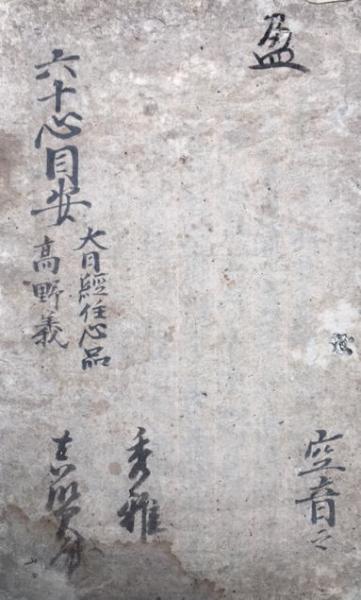 盈
空音之
秀雅
六十心目安
大日經住心品
高野義